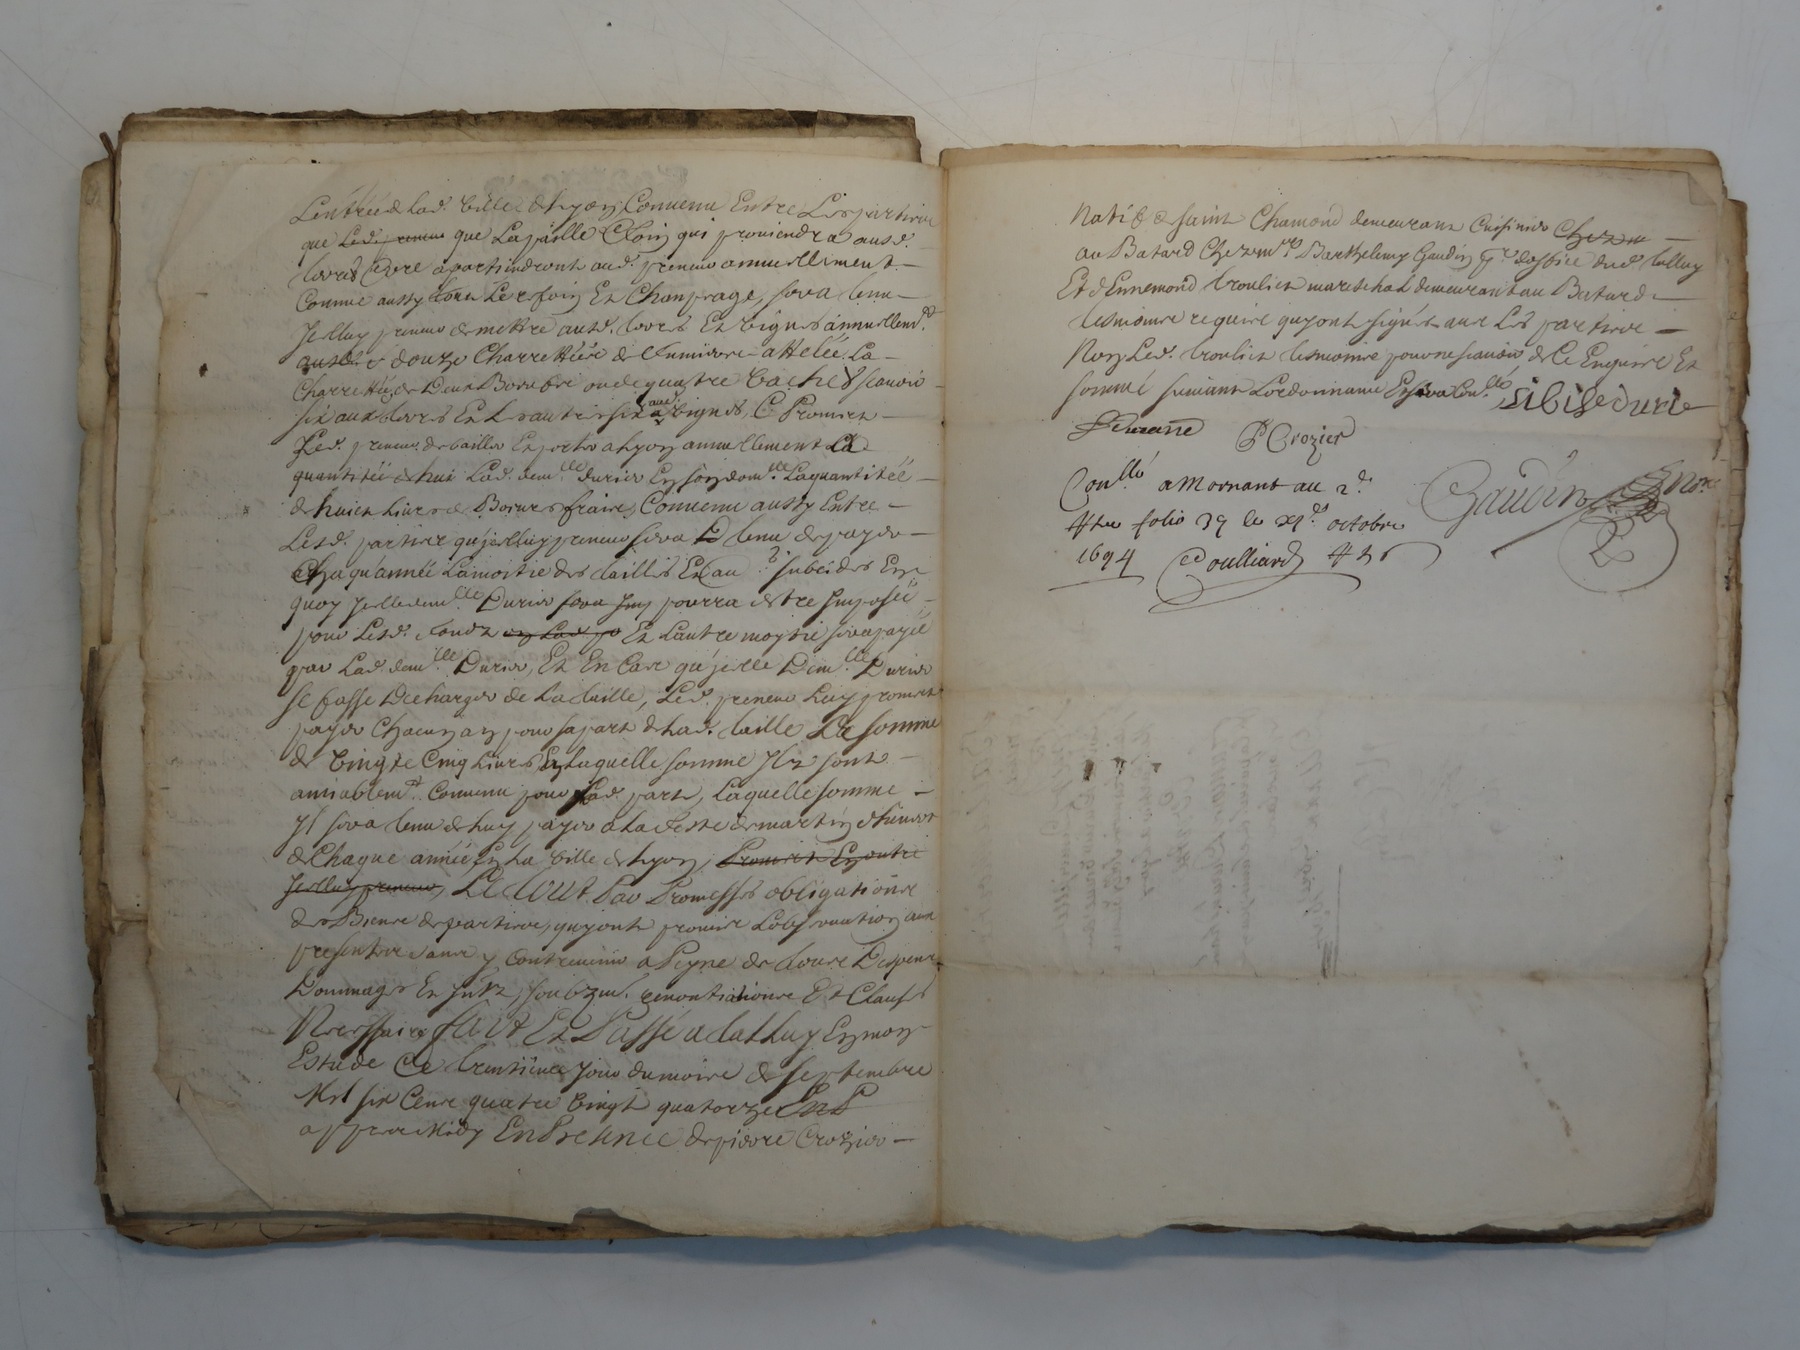 Lentrée de Lad. Ville de Lyon, Convenu Entre Les parties
que Led. preneur que La paille & foin qui proviendra aus d.
terres & pré apartiendront aud. preneur annuellement
Comme aussy tous Les foin Et Chanfrage, sera tenu
Jcelluy preneur de mettre ausd. terres Et vignes annuellemt.
ausd. douze Charrettées de fumier attelée La
Charrette de Deux Boeufs ou de quatre vaches scavoir
six aux terres Et Les autres six aux vignes, & Promet
Led. preneur de bailler Et porter a Lyon annuellement La
quantitée de huit Lad. demlle. Durier En son dom.lle La quantitée
de huict Livres de Beurre fraix, Convenu aussy Entre
Lesd. parties qu'jcelluy preneur sera tenu de payer
Chaque année La moitie des tailles Et au subcides En
quoy Jcelle demlle. Durier sera Imp pourra estre Imposée
pour Lesd. fondz en Lad. p Et Lautre moytie sera payée
par Lad. demlle. Durier, Et En Cas qu'jcelle Demlle. Durier
se fasse Décharger de La taille, Led. preneur Luy promet
payer Chacun an pour sa part de Lad. taille La somme
de Vingt & Cinq Livres En Laquelle somme Ilz sont
amiablemt. Convenu pour Lad. part, Laquelle somme
Il sera tenu de Luy payer a La feste de martin d'hiver
de Chaque année En La Ville de Lyon, Promet En outre
Jcelluy preneur, Le tout Par Promesses obligations
des Biens des parties, qui ont promis Lobservation aux
presentes sans y Contrevenir a Peyne de tous Despens
Dommages Et Jntz, soubzmis. renontiations Et Clauses
Necessaires fait Et Passé a taLLuy En mon
Estude Ce trentieme Jour du mois de septembre
Mil six Cens quatre Vingt quatorze
appres Midy En Presence de pierre Crozier
Natif de saint Chamond demeurant Cuisinier Chez m
au Batard Chez mre Barthelemy Gaudin dud. talluy
Et d'Ennemond trouliet mareschal demeurant au Batard
tesmoins requis qui ont signés avec Les parties
Non Led. trouliet tesmoins pour ne scavoir de Ce Enquis Et
sommé suivant Lordonnance Et sera Con.llé Sibille durie
P Crozier
Con.llé a Mornant au 2d.
folio 39 le octobre
1694 Coulliard
Gaudin Nore